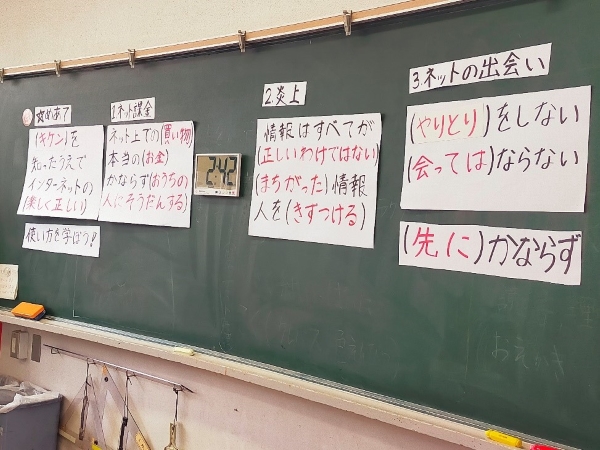 めあて
(キケン)を
知ったうえで
インターネットの
(楽しく正しい)
使い方を学ぼう!
1.ネット課金
ネット上での(買い物)
本当の(お金)
かならず(おうちの
人にそうだんする)
2:42
2.炎上
情報はすべてが
(正しいわけではない)
(まちがった)情報
人を(きずつける)
3.ネットの出会い
(やりとり)をしない
(会っては)ならない
(先に)かならず
おえかき